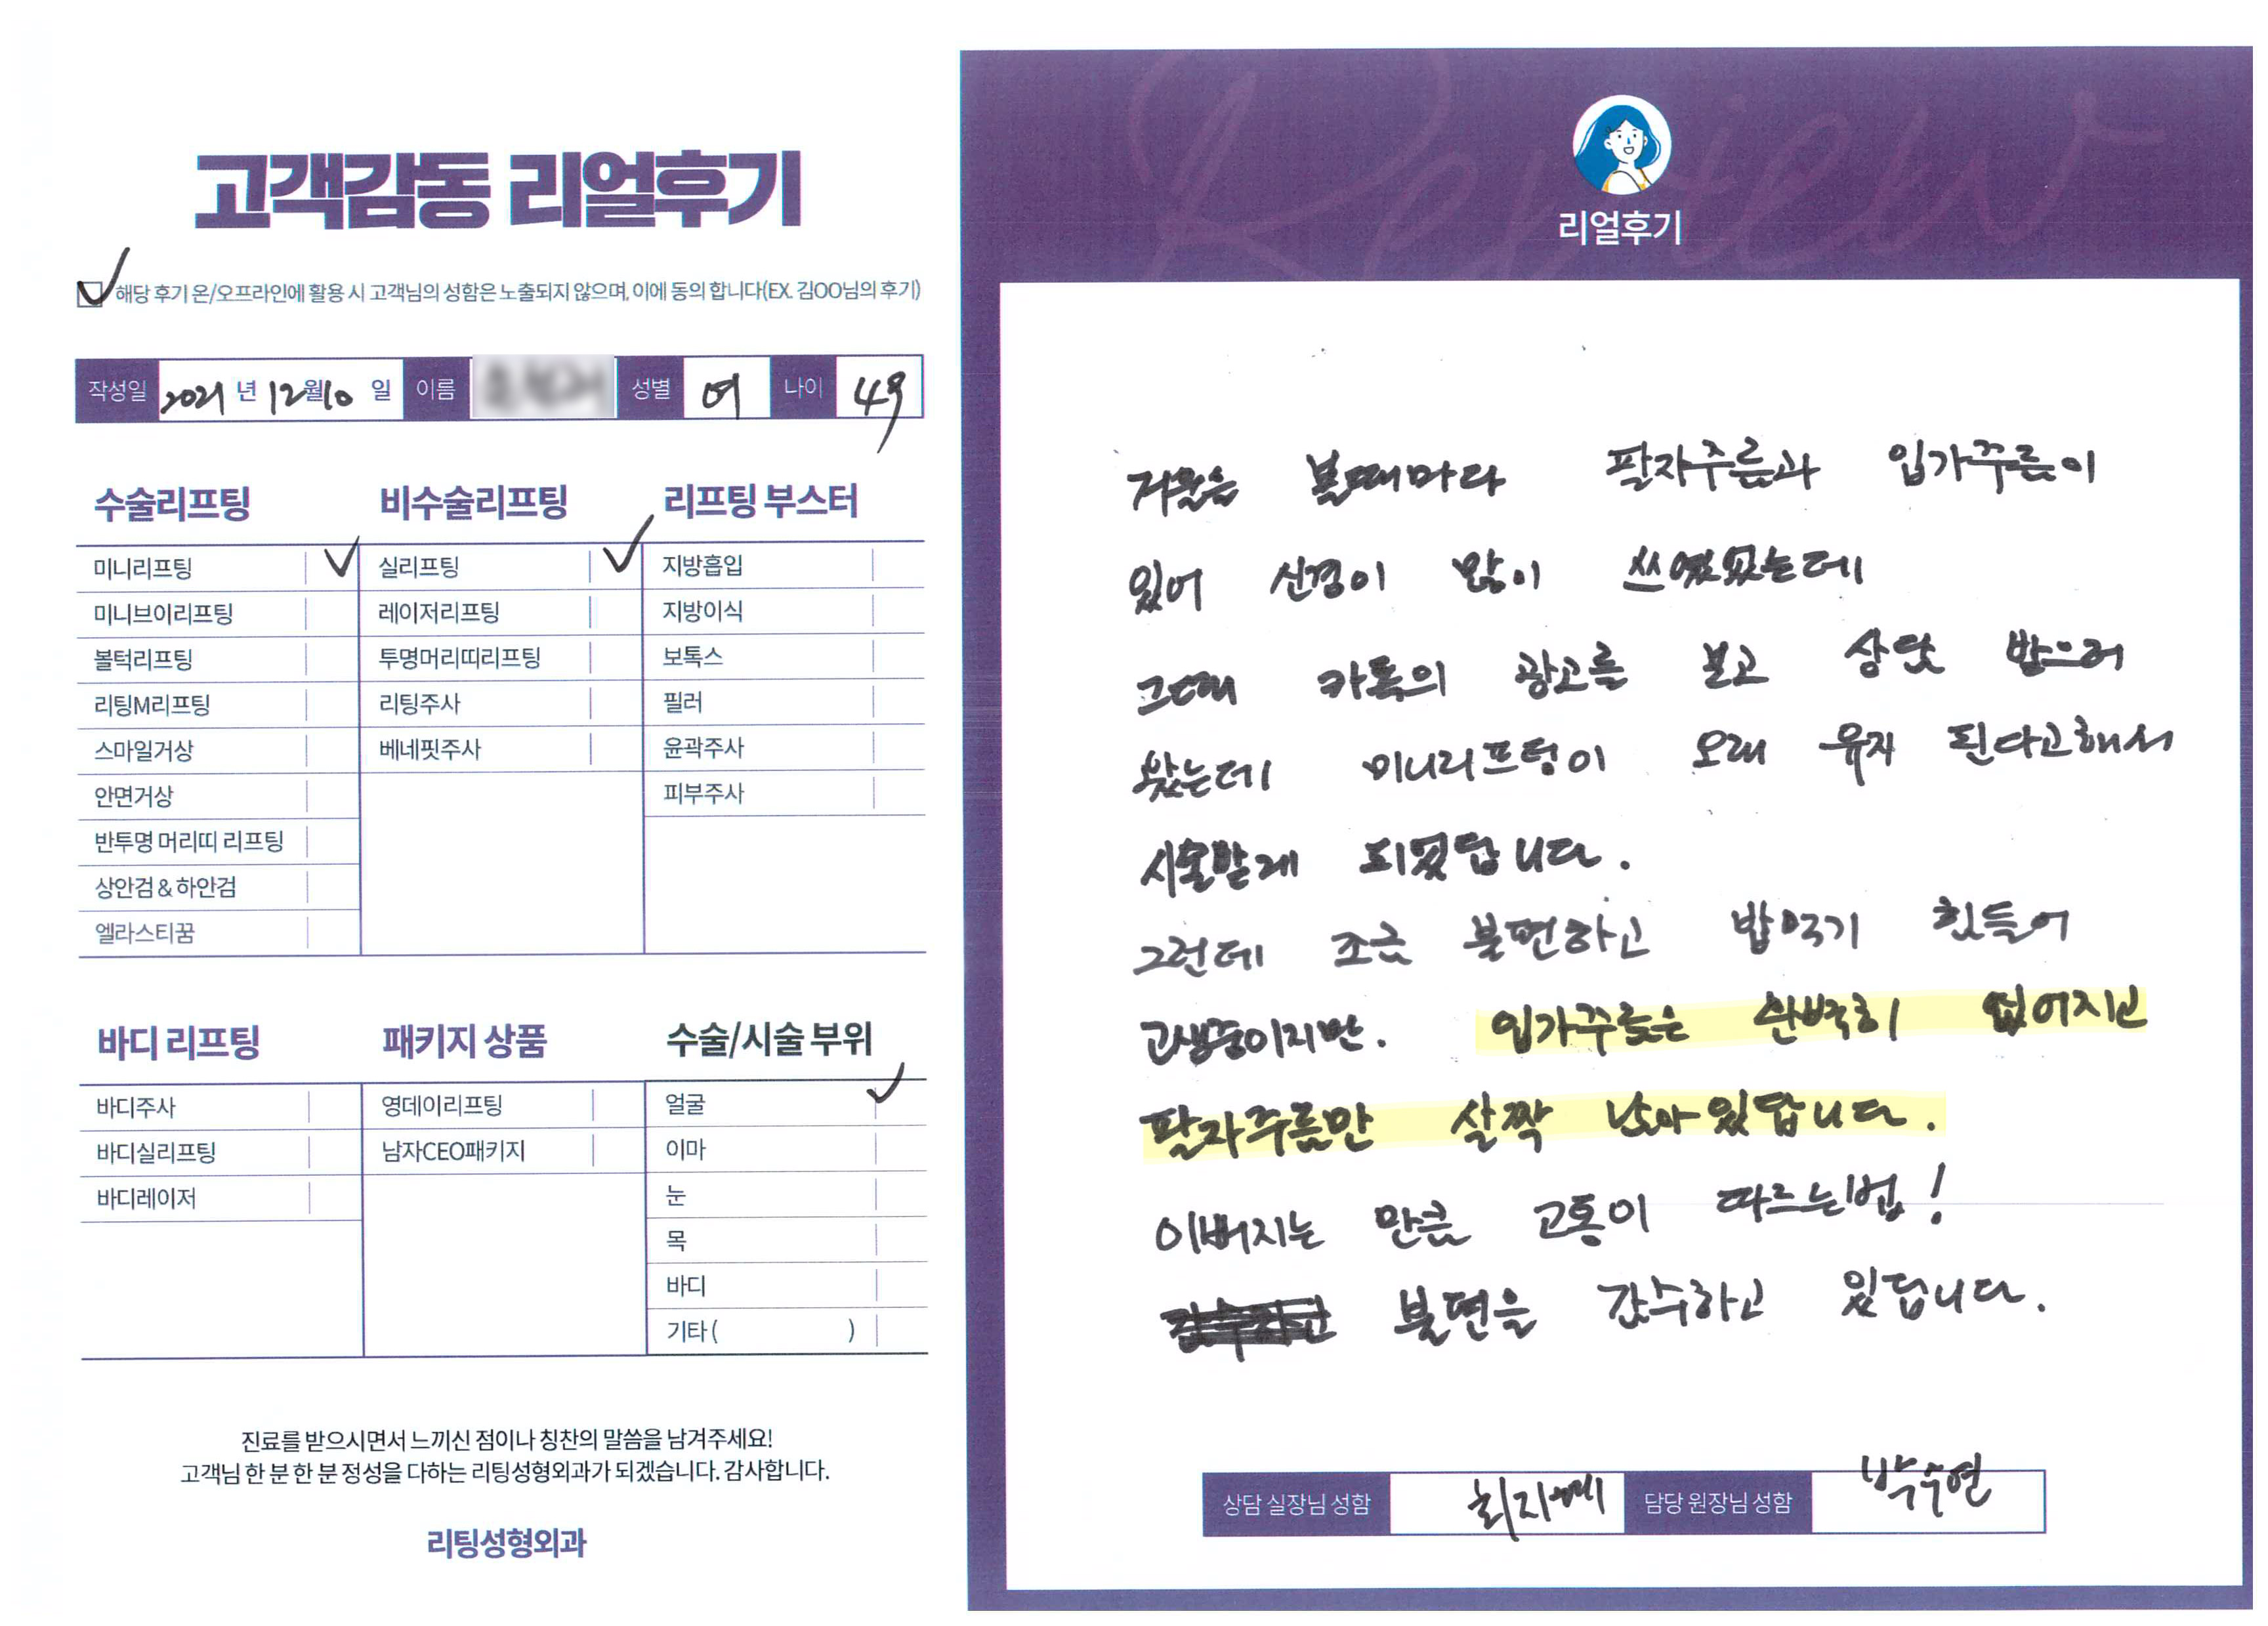 고객감동 리얼후기
해당 후기 온/오프라인에 활용 시 고객님의 성함은 노출되지 않으며, 이에 동의 합니다(EX. 김OO님의 후기)
작성일 2021 년 12월10 일 이름 성별 여 나이 49
수술리프팅 비수술리프팅 리프팅 부스터
미니리프팅 실리프팅 지방흡입
미니브이리프팅 레이저리프팅 지방이식
볼턱리프팅 투명머리띠리프팅 보톡스
리팅M리프팅 리팅주사 필러
스마일거상 베네핏주사 윤곽주사
안면거상 피부주사
반투명 머리띠 리프팅
상안검 & 하안검
엘라스티꿈
바디 리프팅 패키지 상품 수술/시술 부위
바디주사 영데이리프팅 얼굴
바디실리프팅 남자CEO패키지 이마
바디레이저 눈
목
바디
기타 ( )
진료를 받으시면서 느끼신 점이나 칭찬의 말씀을 남겨주세요!
고객님 한 분 한 분 정성을 다하는 리팅성형외과가 되겠습니다. 감사합니다.
리팅성형외과
Review
리얼후기
거울을 볼때마다 팔자주름과 입가주름이
있어 신경이 많이 쓰였었는데
그때 카톡의 광고를 보고 상담 받으러
왔는데 미니리프팅이 오래 유지 된다고해서
시술받게 되었답니다.
그런데 조금 불편하고 밥먹기 힘들어
고생중이지만. 입가주름은 완벽히 없어지고
팔자주름만 살짝 남아있답니다.
이뻐지는 만큼 고통이 따르는법!
불편을 감수하고 있답니다.
상담 실장님 성함 최지혜 담당 원장님 성함 박수연